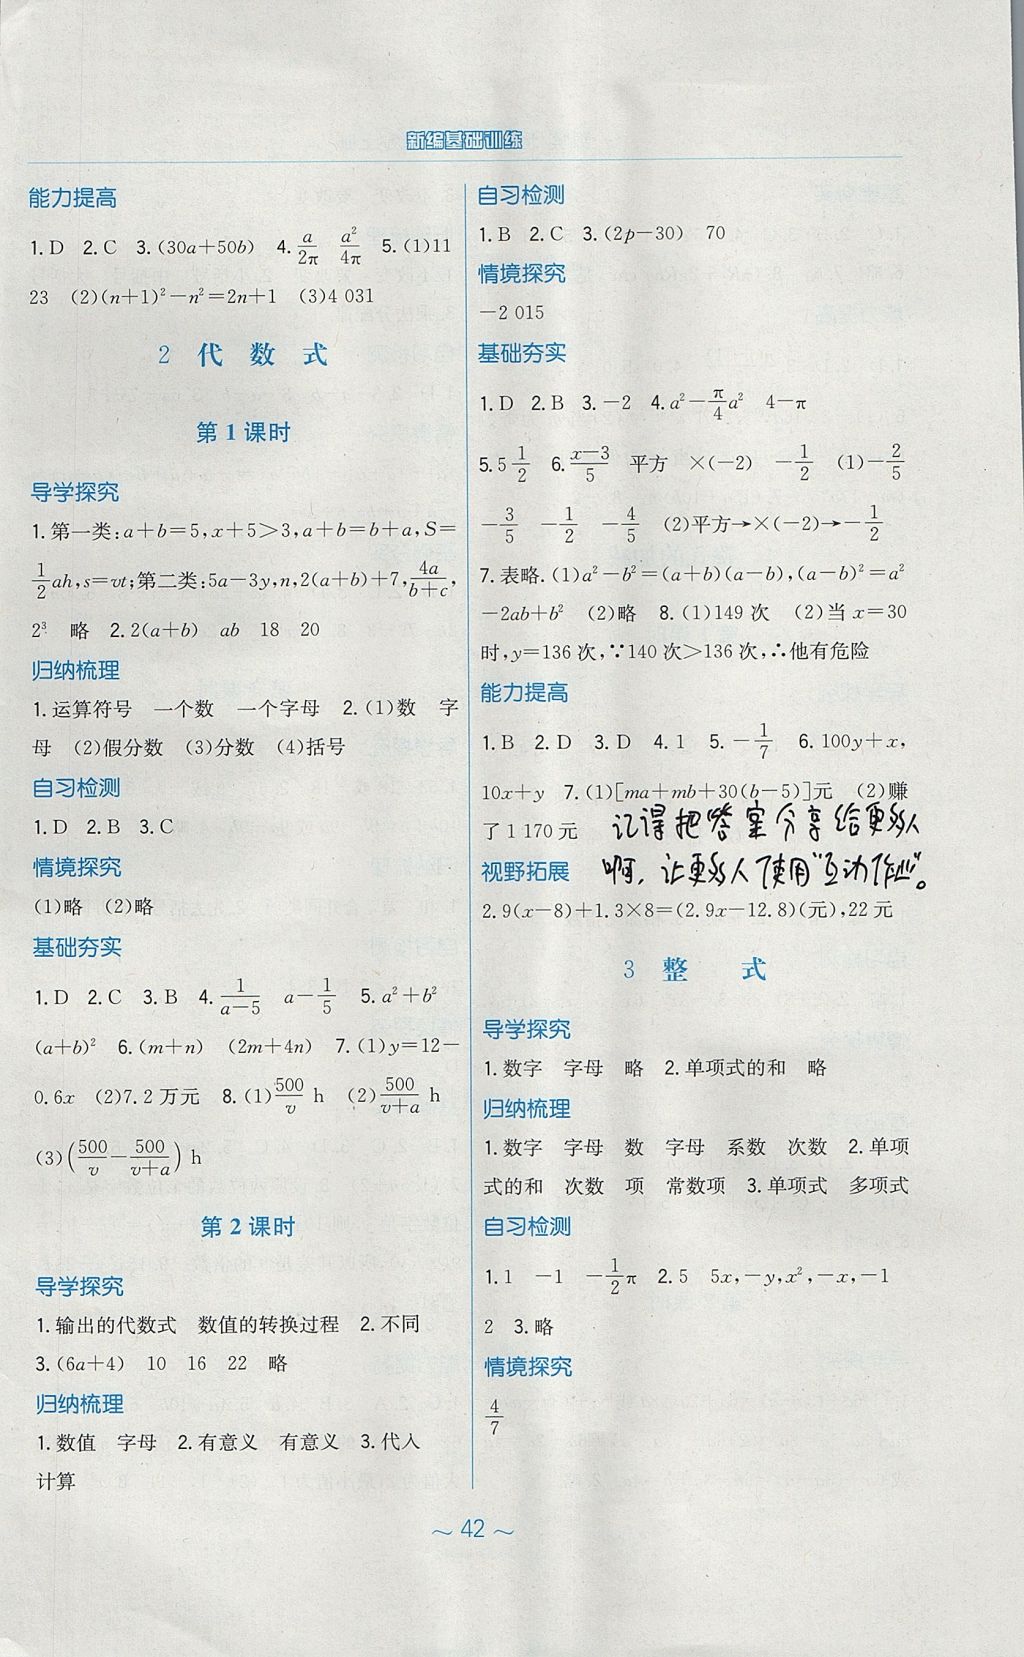 新编基础训练
能力提高
1.D 2.C 3.(30a+50b) 4.a/2π a²/4π 5.(1)11
23 (2)(n+1)²-n²=2n+1 (3)4 031
2 代 数 式
第1课时
导学探究
1.第一类:a+b=5,x+5>3,a+b=b+a,S=
1/2ah,s=vt;第二类:5a-3y,n,2(a+b)+7,4a/b+c,
2³ 略 2.2(a+b) ab 18 20
归纳梳理
1.运算符号 一个数 一个字母 2.(1)数 字
母 (2)假分数 (3)分数 (4)括号
自习检测
1.D 2.B 3.C
情境探究
(1)略 (2)略
基础夯实
1.D 2.C 3.B 4.1/a-5 a-1/5 5.a²+b²
(a+b)² 6.(m+n) (2m+4n) 7.(1)y=12-
0.6x (2)7.2万元 8.(1)500/v h (2)500/v+a h
(3)(500/v-500/v+a) h
第2课时
导学探究
1.输出的代数式 数值的转换过程 2.不同
3.(6a+4) 10 16 22 略
归纳梳理
1.数值 字母 2.有意义 有意义 3.代入
计算
自习检测
1.B 2.C 3.(2p-30) 70
情境探究
-2 015
基础夯实
1.D 2.B 3.-2 4.a²-π/4a² 4-π
5.5 1/2 6.x-3/5 平方 ×(-2) -1/2 (1)-2/5
-3/5 -1/2 -4/5 (2)平方→×(-2)→-1/2
7.表略.(1)a²-b²=(a+b)(a-b),(a-b)²=a²
-2ab+b² (2)略 8.(1)149次 (2)当x=30
时,y=136次,∵140次>136次,∴他有危险
能力提高
1.B 2.D 3.D 4.1 5.-1/7 6.100y+x,
10x+y 7.(1)[ma+mb+30(b-5)]元 (2)赚
了1 170元 记得把答案分享给更多人
视野拓展 啊，让更多人使用“互动作业”。
2.9(x-8)+1.3×8=(2.9x-12.8)(元),22元
3 整 式
导学探究
1.数字 字母 略 2.单项式的和 略
归纳梳理
1.数字 字母 数 字母 系数 次数 2.单项
式的和 次数 项 常数项 3.单项式 多项式
自习检测
1.1 -1 -1/2π 2.5 5x,-y,x²,-x,-1
2 3.略
情境探究
4/7
～42～